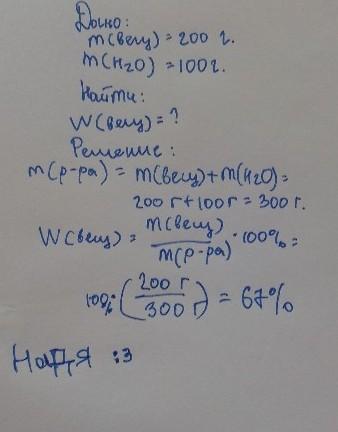 Дано:
m(вещ) = 200 г.
m(H₂O) = 100 г.
Найти:
W(вещ) = ?
Решение:
m(р-ра) = m(вещ) + m(H₂O) =
200 г + 100 г = 300 г.
W(вещ) = m(вещ) / m(р-ра) · 100% =
100% · (200 г / 300 г) = 67%
Надя :3